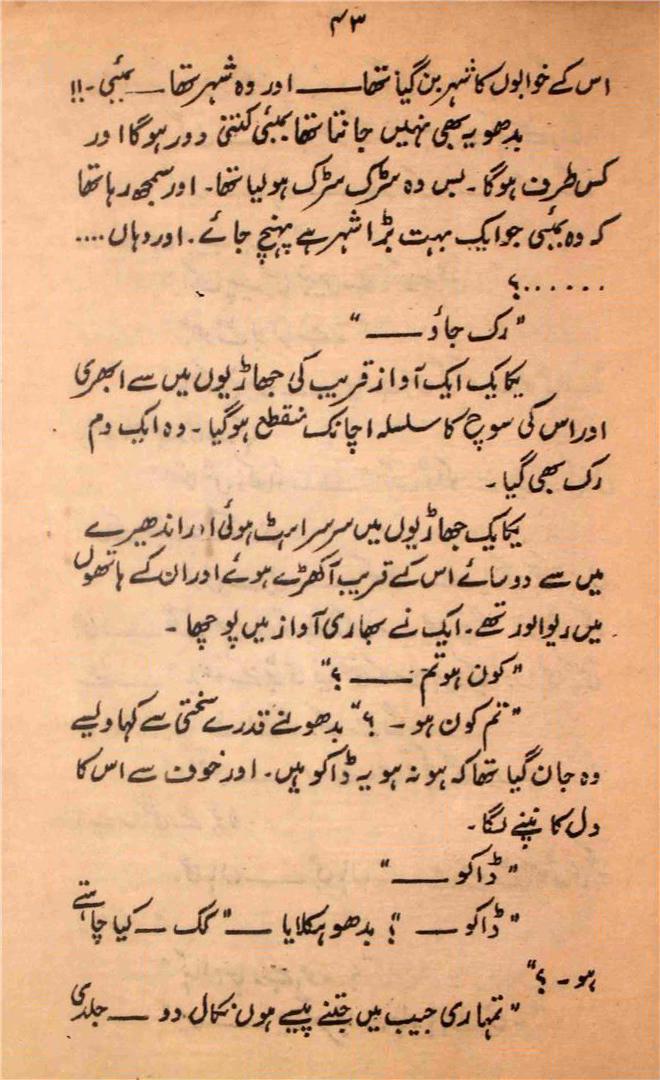 ۴۳
اس کے خوابوں کا شہر بن گیا تھا ــــ اور وہ شہر تھا ــــ بمبئی۔!!
بدھو یہ بھی نہیں جانتا تھا بمبئی کتنی دور ہوگا اور
کس طرف ہوگا۔ بس وہ سڑک سڑک ہولیا تھا۔ اور سمجھ رہا تھا
کہ وہ بمبئی جو ایک بہت بڑا شہر ہے پہنچ جائے۔ اور وہاں ....
......؟
"رک جاؤ ــــ"
یکایک ایک آواز قریب کی جھاڑیوں میں سے ابھری
اور اس کی سوچ کا سلسلہ اچانک منقطع ہوگیا۔ وہ ایک دم
رک بھی گیا۔
یکایک جھاڑیوں میں سرسراہٹ ہوئی اور اندھیرے
میں سے دو سائے اس کے قریب آ کھڑے ہوئے اور ان کے ہاتھوں
میں ریوالور تھے۔ ایک نے بھاری آواز میں پوچھا۔
"کون ہو تم ــــ؟"
"تم کون ہو۔ ؟" بدھو نے قدرے سختی سے کہا ویسے
وہ جان گیا تھا کہ ہو نہ ہو یہ ڈاکو ہیں۔ اور خوف سے اس کا
دل کانپنے لگا۔
"ڈاکو ــــ"
"ڈاکو ــــ ؟" بدھو ہکلایا ــــ "کک ــ کیا چاہتے
ہو۔ ؟"
"تمہاری جیب میں جتنے پیسے ہوں نکال دو ــــ جلدی